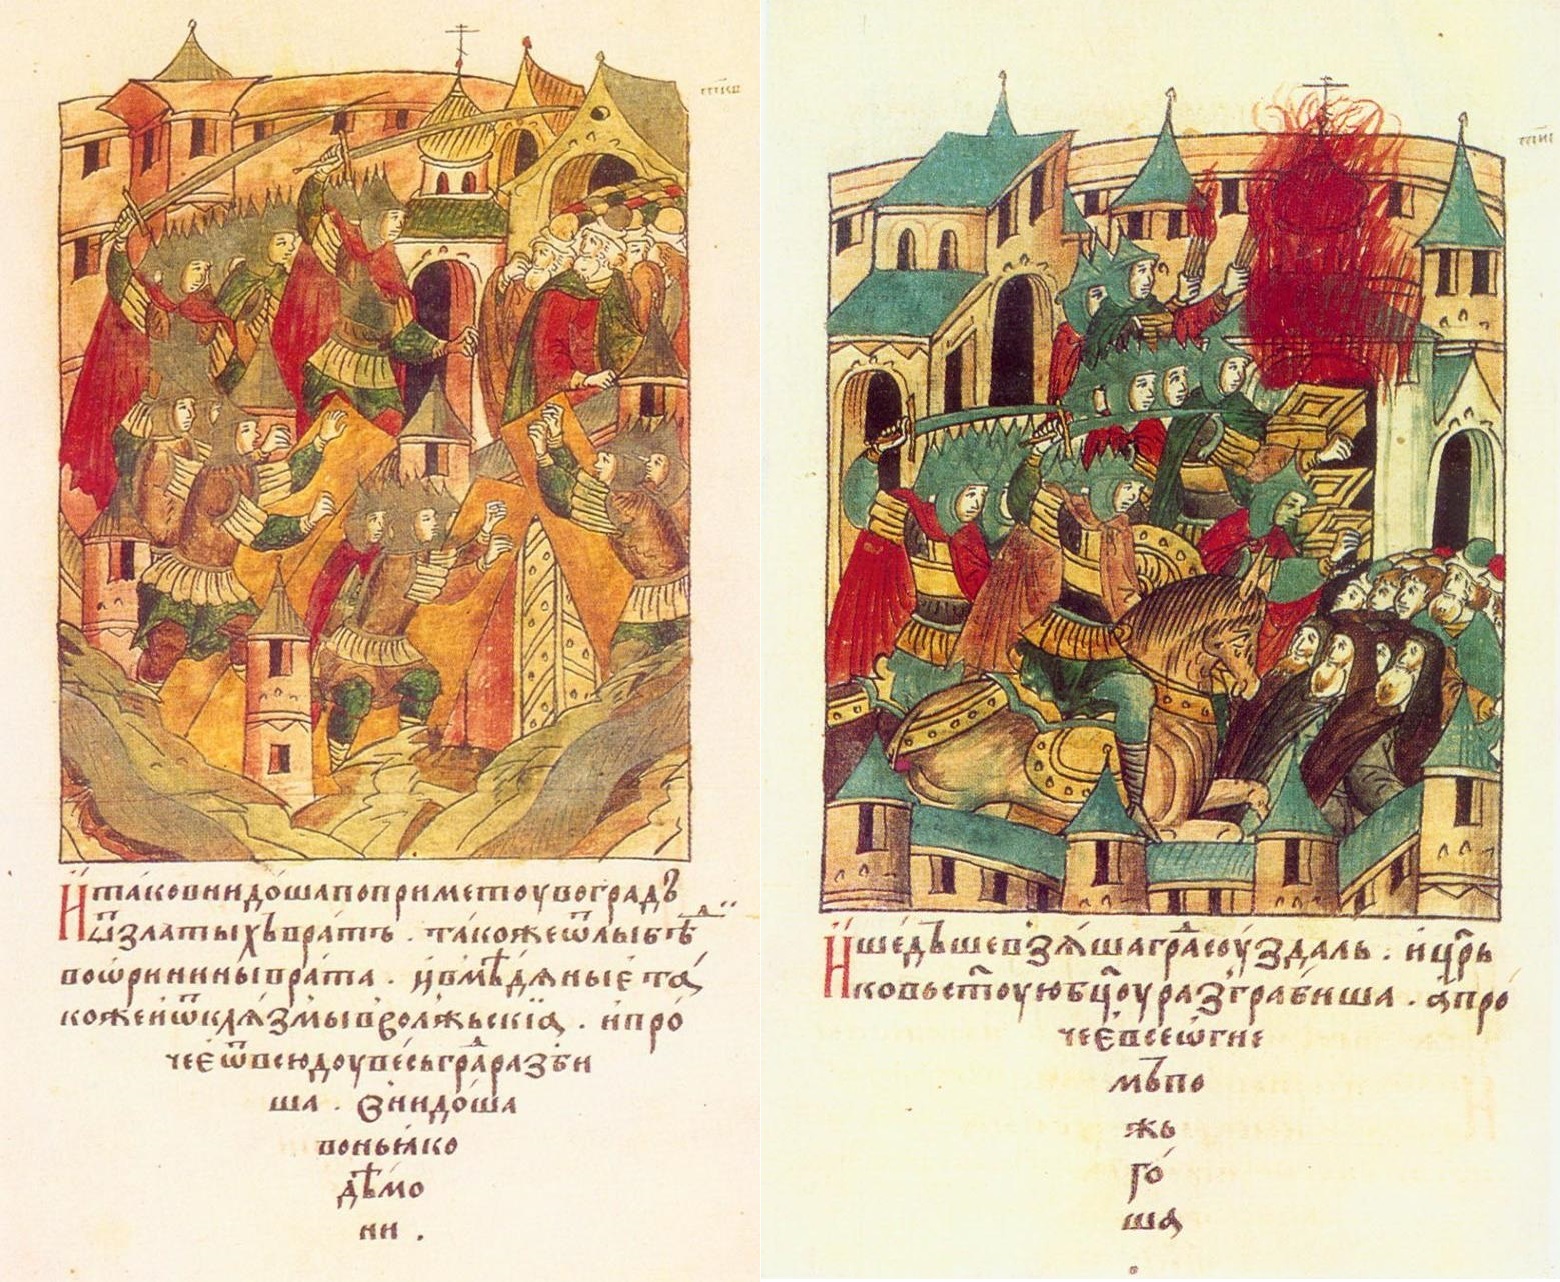 И тако внидоша по примету во градъ
ѿ златыхъ вратъ . такоже ѿ лыбѣⷣ
во ѡринины врата . и в мѣдяные та
коже и ѿ клязмы в волжьскїя . и про
чее ѿвсюду весь граⷣ разби
ша . и внидоша
во нь яко
дѣмо
ни .
И шедъше взяша граⷣ соуздаль . и црⷪ҇ь
ковь ст҃ую бц҃оу разграбиша . а про
чее все ѡгне
мъ по
жь
го
ша
.